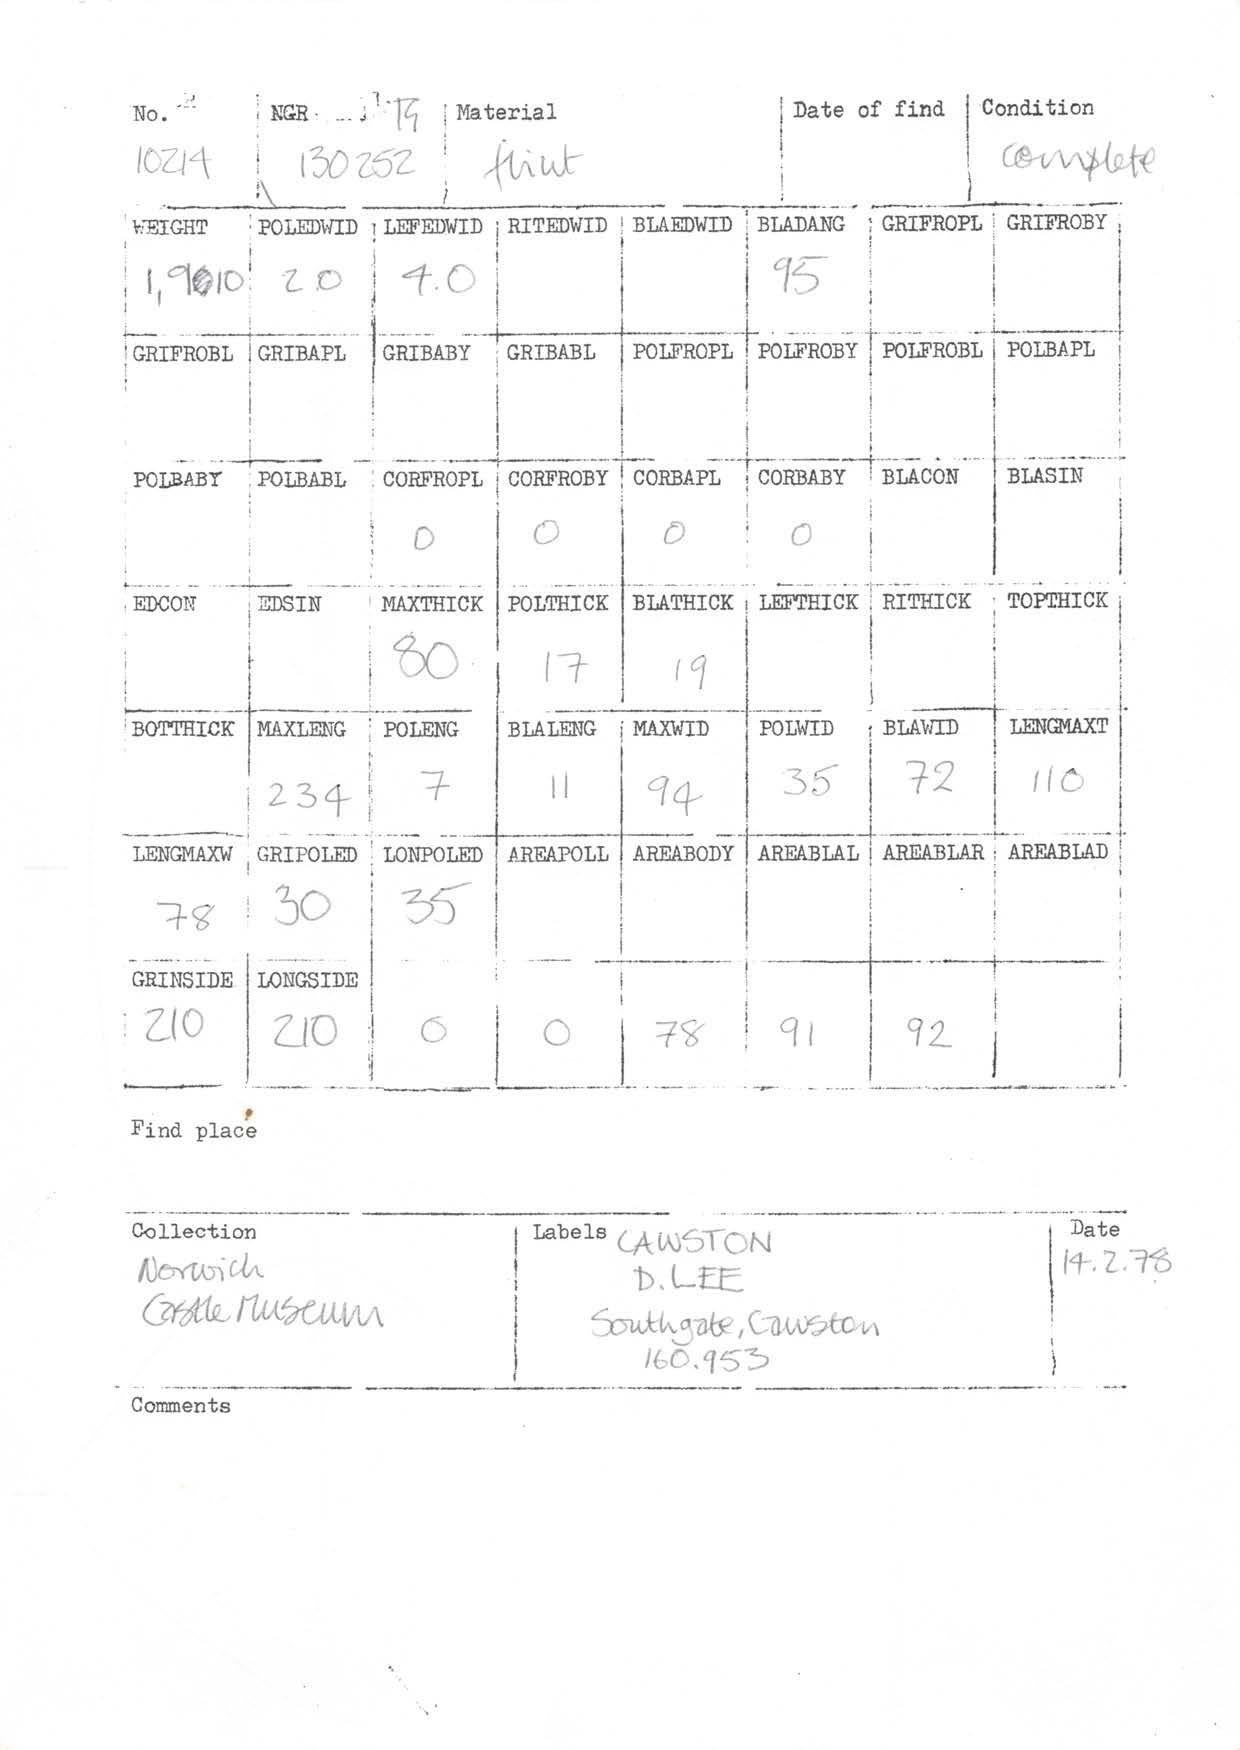 No. NGR TG Material Date of find Condition
10214 130252 flint complete
WEIGHT POLEDWID LEFEDWID RITEDWID BLAEDWID BLADANG GRIFROPL GRIFROBY
2.0 4.0 95
GRIFROBL GRIBAPL GRIBABY GRIBABL POLFROPL POLFROBY POLFROBL POLBAPL
POLBABY POLBABL CORFROPL CORFROBY CORBAPL CORBABY BLACON BLASIN
0 0 0 0
EDCON EDSIN MAXTHICK POLTHICK BLATHICK LEFTHICK RITHICK TOPTHICK
80 17 19
BOTTHICK MAXLENG POLENG BLALENG MAXWID POLWID BLAWID LENGMAXT
234 7 11 94 35 72 110
LENGMAXW GRIPOLED LONPOLED AREAPOLL AREABODY AREABLAL AREABLAR AREABLAD
78 30 35
GRINSIDE LONGSIDE
210 210 0 0 78 91 92
Find place
Collection Labels CAWSTON Date
Norwich D. LEE 14.2.78
Castle Museum Southgate, Cawston
160.953
Comments